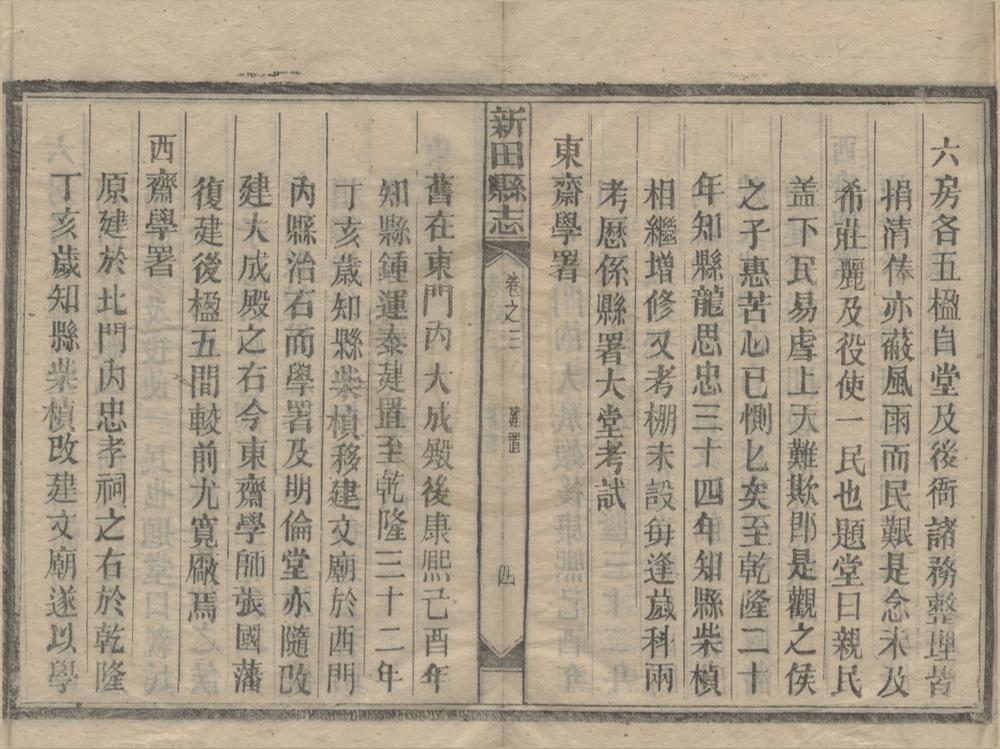 六房各五楹自堂及後衙諸務整理皆
捐清俸亦蔽風雨而民艱是念未及
希莊麗及役使一民也題堂曰親民
盖下民易虐上天難欺卽是觀之侯
之子惠苦心已惻匕矣至乾隆二十
年知縣龍思忠三十四年知縣柴楨
相繼增修又考棚未設每逢歲科兩
考歷係縣署大堂考試
東齋學署
新田縣志
卷之三
建置
四
舊在東門內大成殿後康熙己酉年
知縣鍾運泰建置至乾隆三十二年
丁亥歲知縣柴楨移建文廟於西門
內縣治右而學署及明倫堂亦隨改
建大成殿之右今東齋學師張國藩
復建後楹五間較前尤寬厰焉
西齋學署
原建於北門內忠孝祠之右於乾隆
丁亥歲知縣柴楨改建文廟遂以學